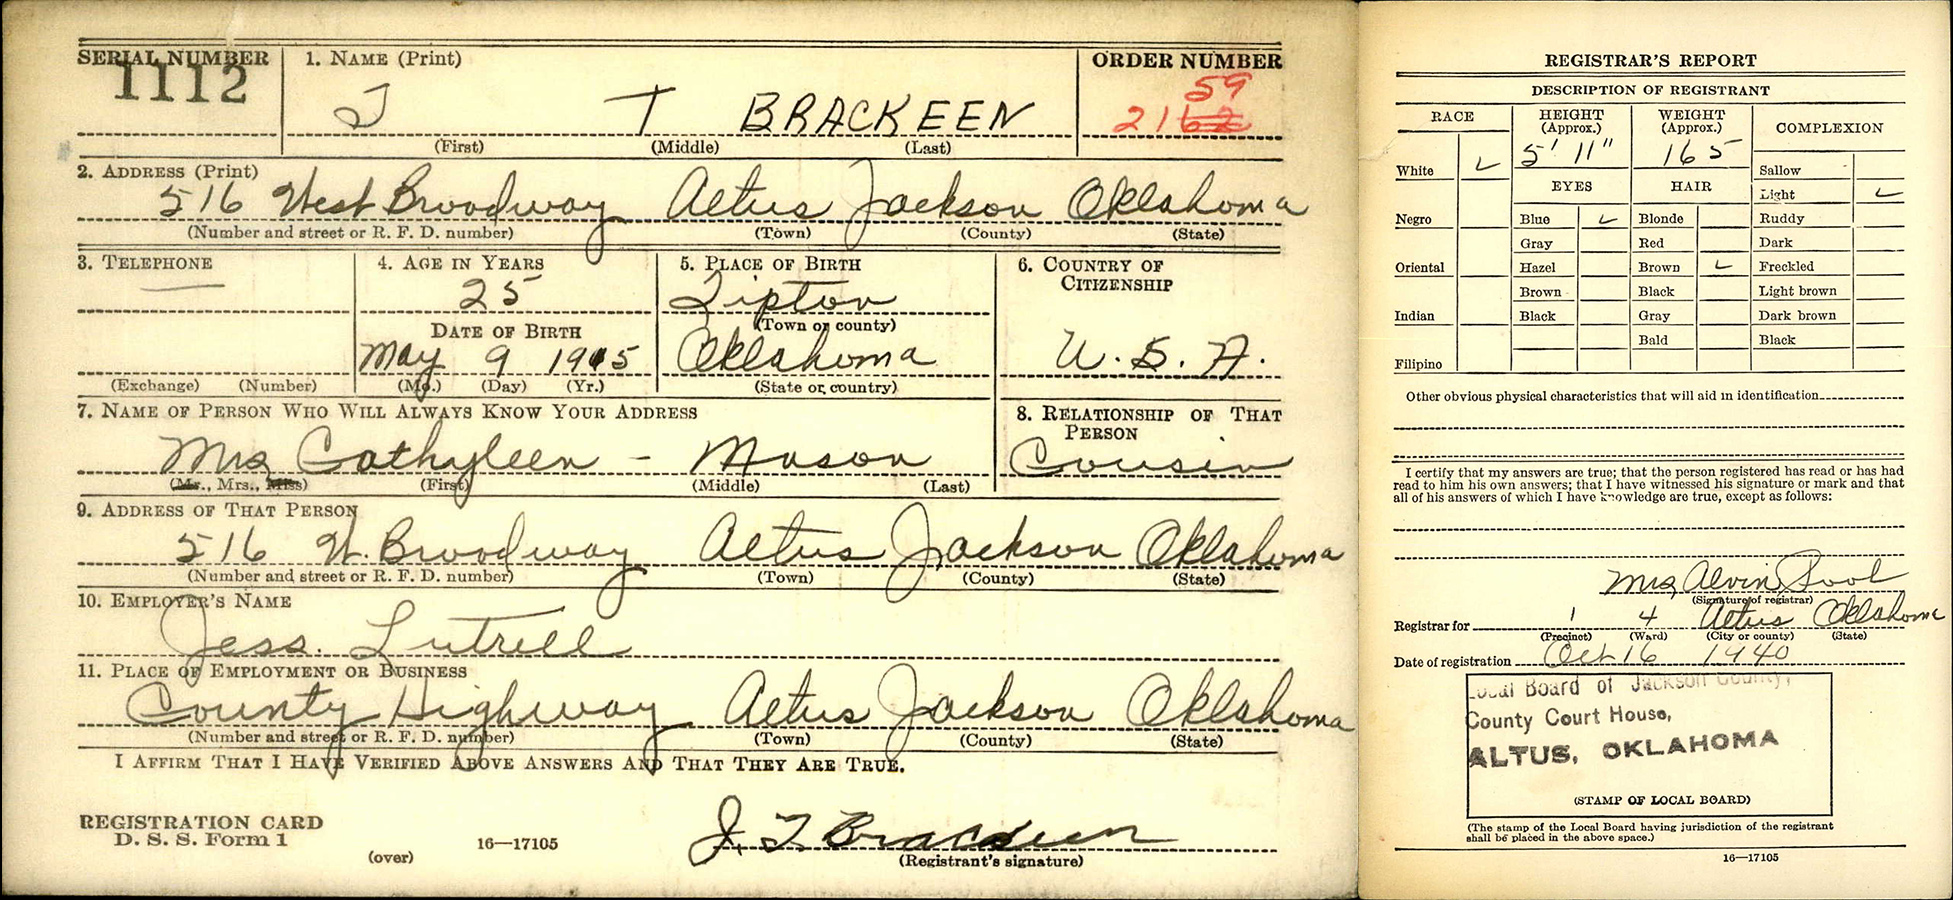 SERIAL NUMBER
1112
1. NAME (Print)
J T BRACKEEN
(First) (Middle) (Last)
ORDER NUMBER
59
2162
2. ADDRESS (Print)
516 West Broodway Altus Jackson Oklahoma
(Number and street or R. F. D. number) (Town) (County) (State)
3. TELEPHONE
(Exchange) (Number)
4. AGE IN YEARS
25
DATE OF BIRTH
May 9 1915
(Mo.) (Day) (Yr.)
5. PLACE OF BIRTH
Tipton
(Town or county)
Oklahoma
(State or country)
6. COUNTRY OF
CITIZENSHIP
U. S. A.
7. NAME OF PERSON WHO WILL ALWAYS KNOW YOUR ADDRESS
Mrs Cathyleen - Mason
(Mr., Mrs., Miss) (First) (Middle) (Last)
8. RELATIONSHIP OF THAT
PERSON
Cousin
9. ADDRESS OF THAT PERSON
516 W. Broodway Altus Jackson Oklahoma
(Number and street or R. F. D. number) (Town) (County) (State)
10. EMPLOYER'S NAME
Jess. Lutrell
11. PLACE OF EMPLOYMENT OR BUSINESS
County Highway Altus Jackson Oklahoma
(Number and street or R. F. D. number) (Town) (County) (State)
I AFFIRM THAT I HAVE VERIFIED ABOVE ANSWERS AND THAT THEY ARE TRUE.
REGISTRATION CARD
D. S. S. Form 1
(over)
16—17105
J. T. Brackeen
(Registrant's signature)
REGISTRAR'S REPORT
DESCRIPTION OF REGISTRANT
RACE
White ✓
Negro
Oriental
Indian
Filipino
HEIGHT
(Approx.)
5' 11"
WEIGHT
(Approx.)
165
EYES
Blue ✓
Gray
Hazel
Brown
Black
HAIR
Blonde
Red
Brown ✓
Black
Gray
Bald
COMPLEXION
Sallow
Light ✓
Ruddy
Dark
Freckled
Light brown
Dark brown
Black
Other obvious physical characteristics that will aid in identification
I certify that my answers are true; that the person registered has read or has had
read to him his own answers; that I have witnessed his signature or mark and that
all of his answers of which I have knowledge are true, except as follows:
Mrs Alvin Pool
(Signature of registrar)
Registrar for 1 4 Altus Oklahoma
(Precinct) (Ward) (City or county) (State)
Date of registration Oct 16 1940
Local Board of Jackson County,
County Court House,
ALTUS, OKLAHOMA
(STAMP OF LOCAL BOARD)
(The stamp of the Local Board having jurisdiction of the registrant
shall be placed in the above space.)
16—17105